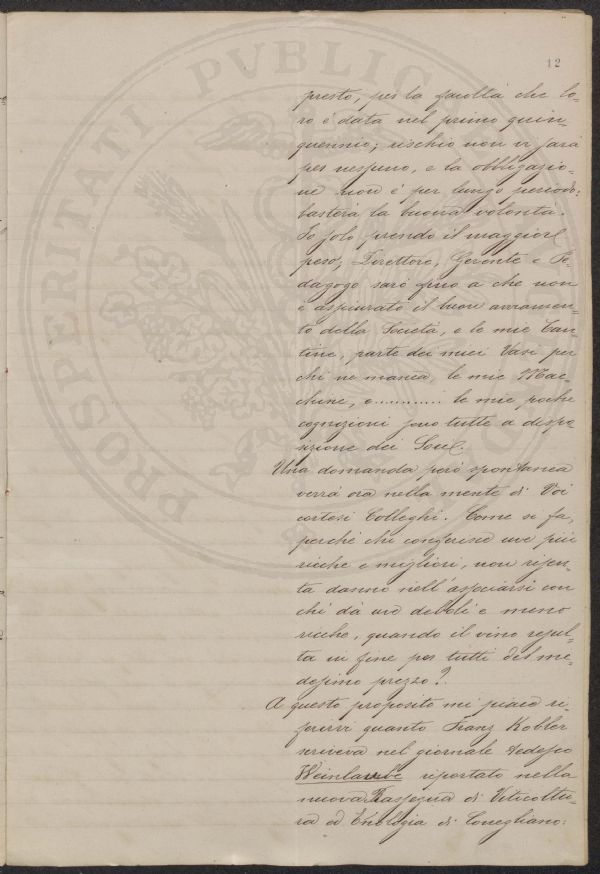 12
presto, per la facoltà che lo=
ro è data nel primo quin=
quennio; rischio non vi sarà
per nessuno, e la obbligazio=
ne non è per lungo periodo:
basterà la buona volontà.
Io solo prendo il maggior
peso; Direttore, Gerente e Pe=
dagogo sarò fino a che non
è assicurato il buon avviamen=
to della Società, e le mie Can=
tine, parte dei miei Vasi per
chi ne manca, le mie Mac=
chine, e........... le mie poche
cognizioni sono tutte a dispo=
sizione dei Soci.
Una domanda però spontanea
verrà ora nella mente di Voi
cortesi Colleghi. Come si fa,
perché chi conferisce uve più
ricche e migliori, non risen=
ta danno nell'associarsi con
chi dà uve deboli e meno
ricche, quando il vino resul=
ta in fine per tutti del me=
desimo prezzo?
A questo proposito mi piace ri=
ferirvi quanto Franz Kobler
scriveva nel giornale tedesco
Weinlaube riportato nella
nuova Rassegna di Viticoltu=
ra ed Enologia di Conegliano:
PROSPERITATI PVBLICAE